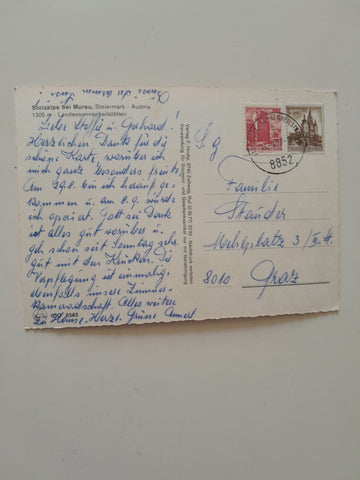 Stolzalpe bei Murau, Steiermark · Austria
1305 m · Landessonnenheilstätten
Liebe Steffi u. Gerhard!
Herzlichen Dank für die
schöne Karte, worüber ich
mich ganz besonders freute.
Am 29.8. bin ich herauf ge-
kommen u. am 8.9. wurde
ich operiert. Gott sei Dank
ist alles gut vorüber u.
geh schon seit Sonntag sehr
gut mit den Krücken. Die
Verpflegung ist einmalig,
ebenfalls unsere Zimmer-
kameradschaft. Alles weitere
zu Hause. Herzl. Grüsse
8852
S. g.
Familie
Stander
3/II.
8010 Graz